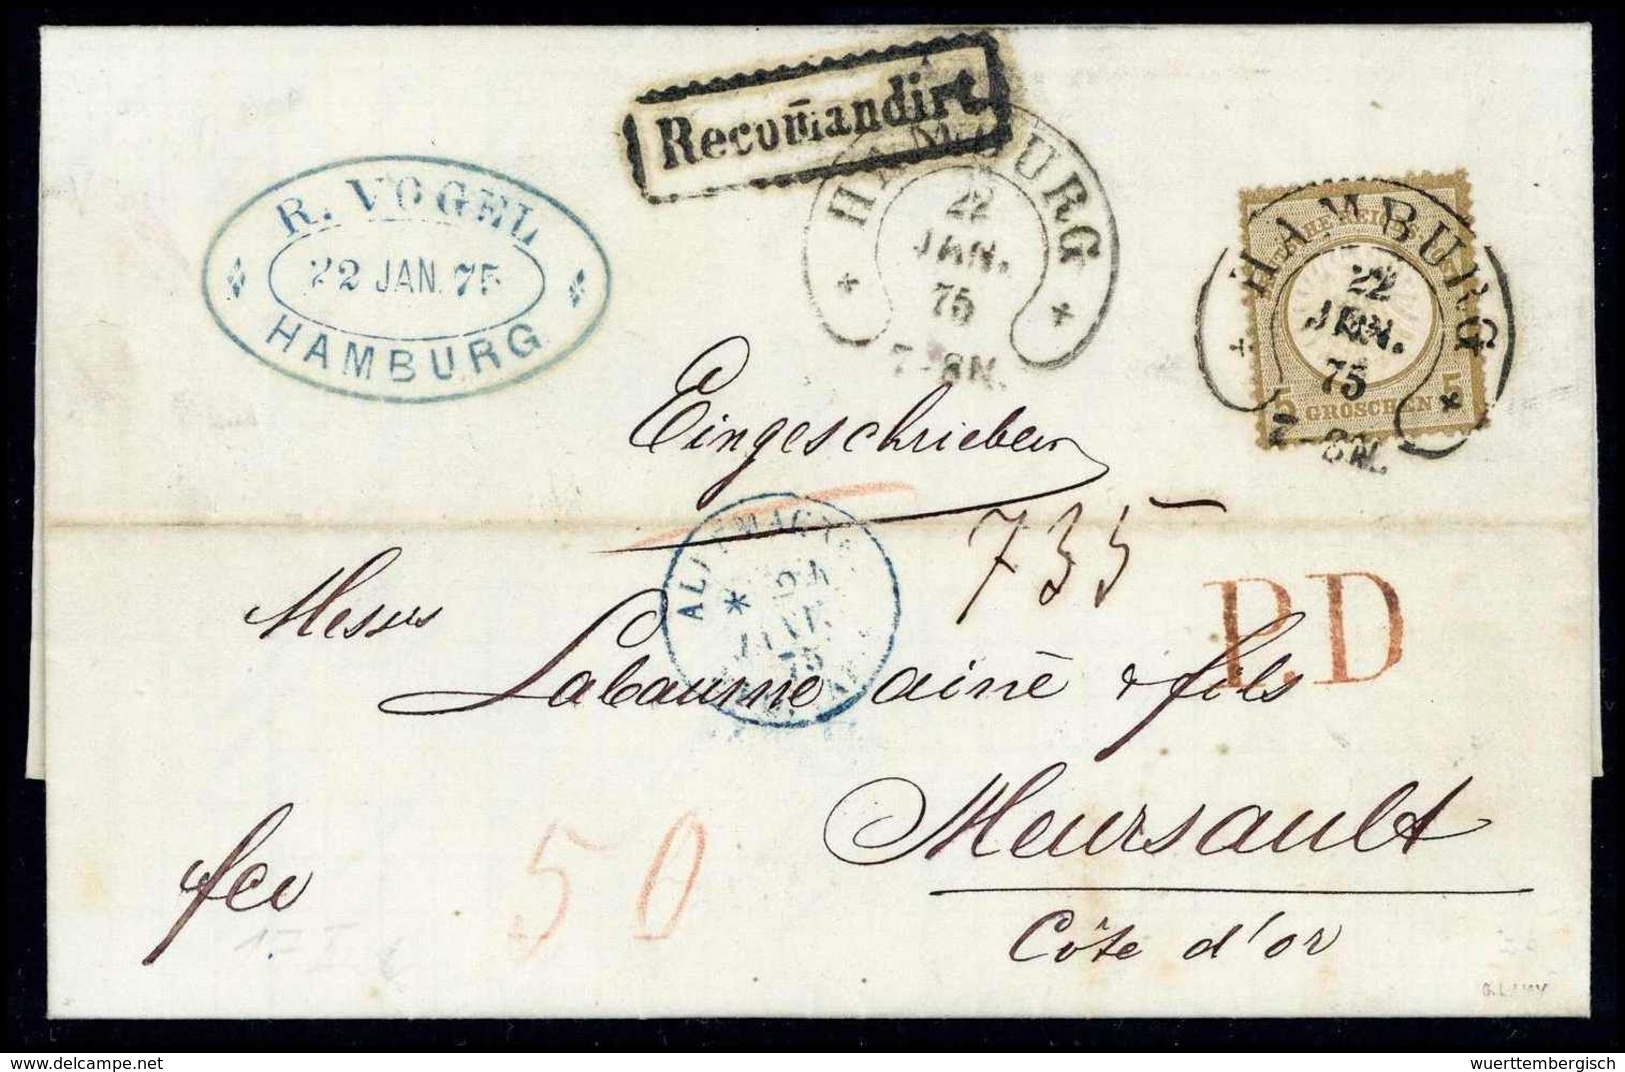 Recom̄andirt
R. VOGEL
22 JAN. 75
HAMBURG
HAMBURG
22
JAN.
75
7-8N.
HAMBURG
22
JAN.
75
7-8N.
5 GROSCHEN 5
Eingeschrieben
735
24
JANV.
75
P.D
Messrs
Labaume ainè & fils
Meursault
Côte d'or
fco
50
17 I
Delcampe.net
wuerttembergisch